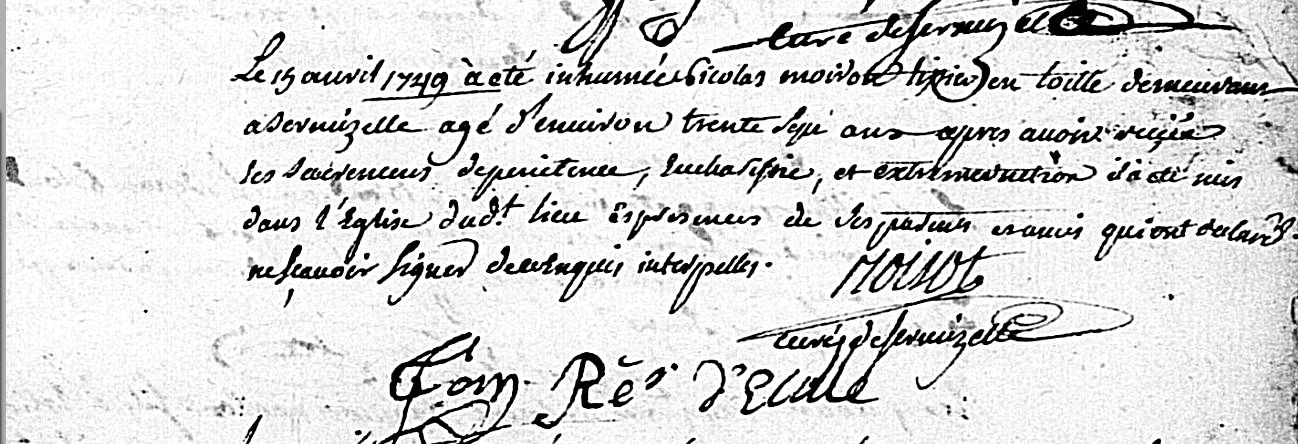 curé de sermizelle
Le 15 avril 1749 à été inhumée Nicolas moiron tixier en toille demeurant
a Sermizelle agé d'environ trente sept ans apres avoir reçüe
les sacremens de penitence, Euchastie, et extremeonction il a été mis
dans l'Eglise dud.t lieu Es presences de ses parens et amis qui ont declaré
ne sçavoir signer de ce Enquis interpelles.
curé de sermizelle